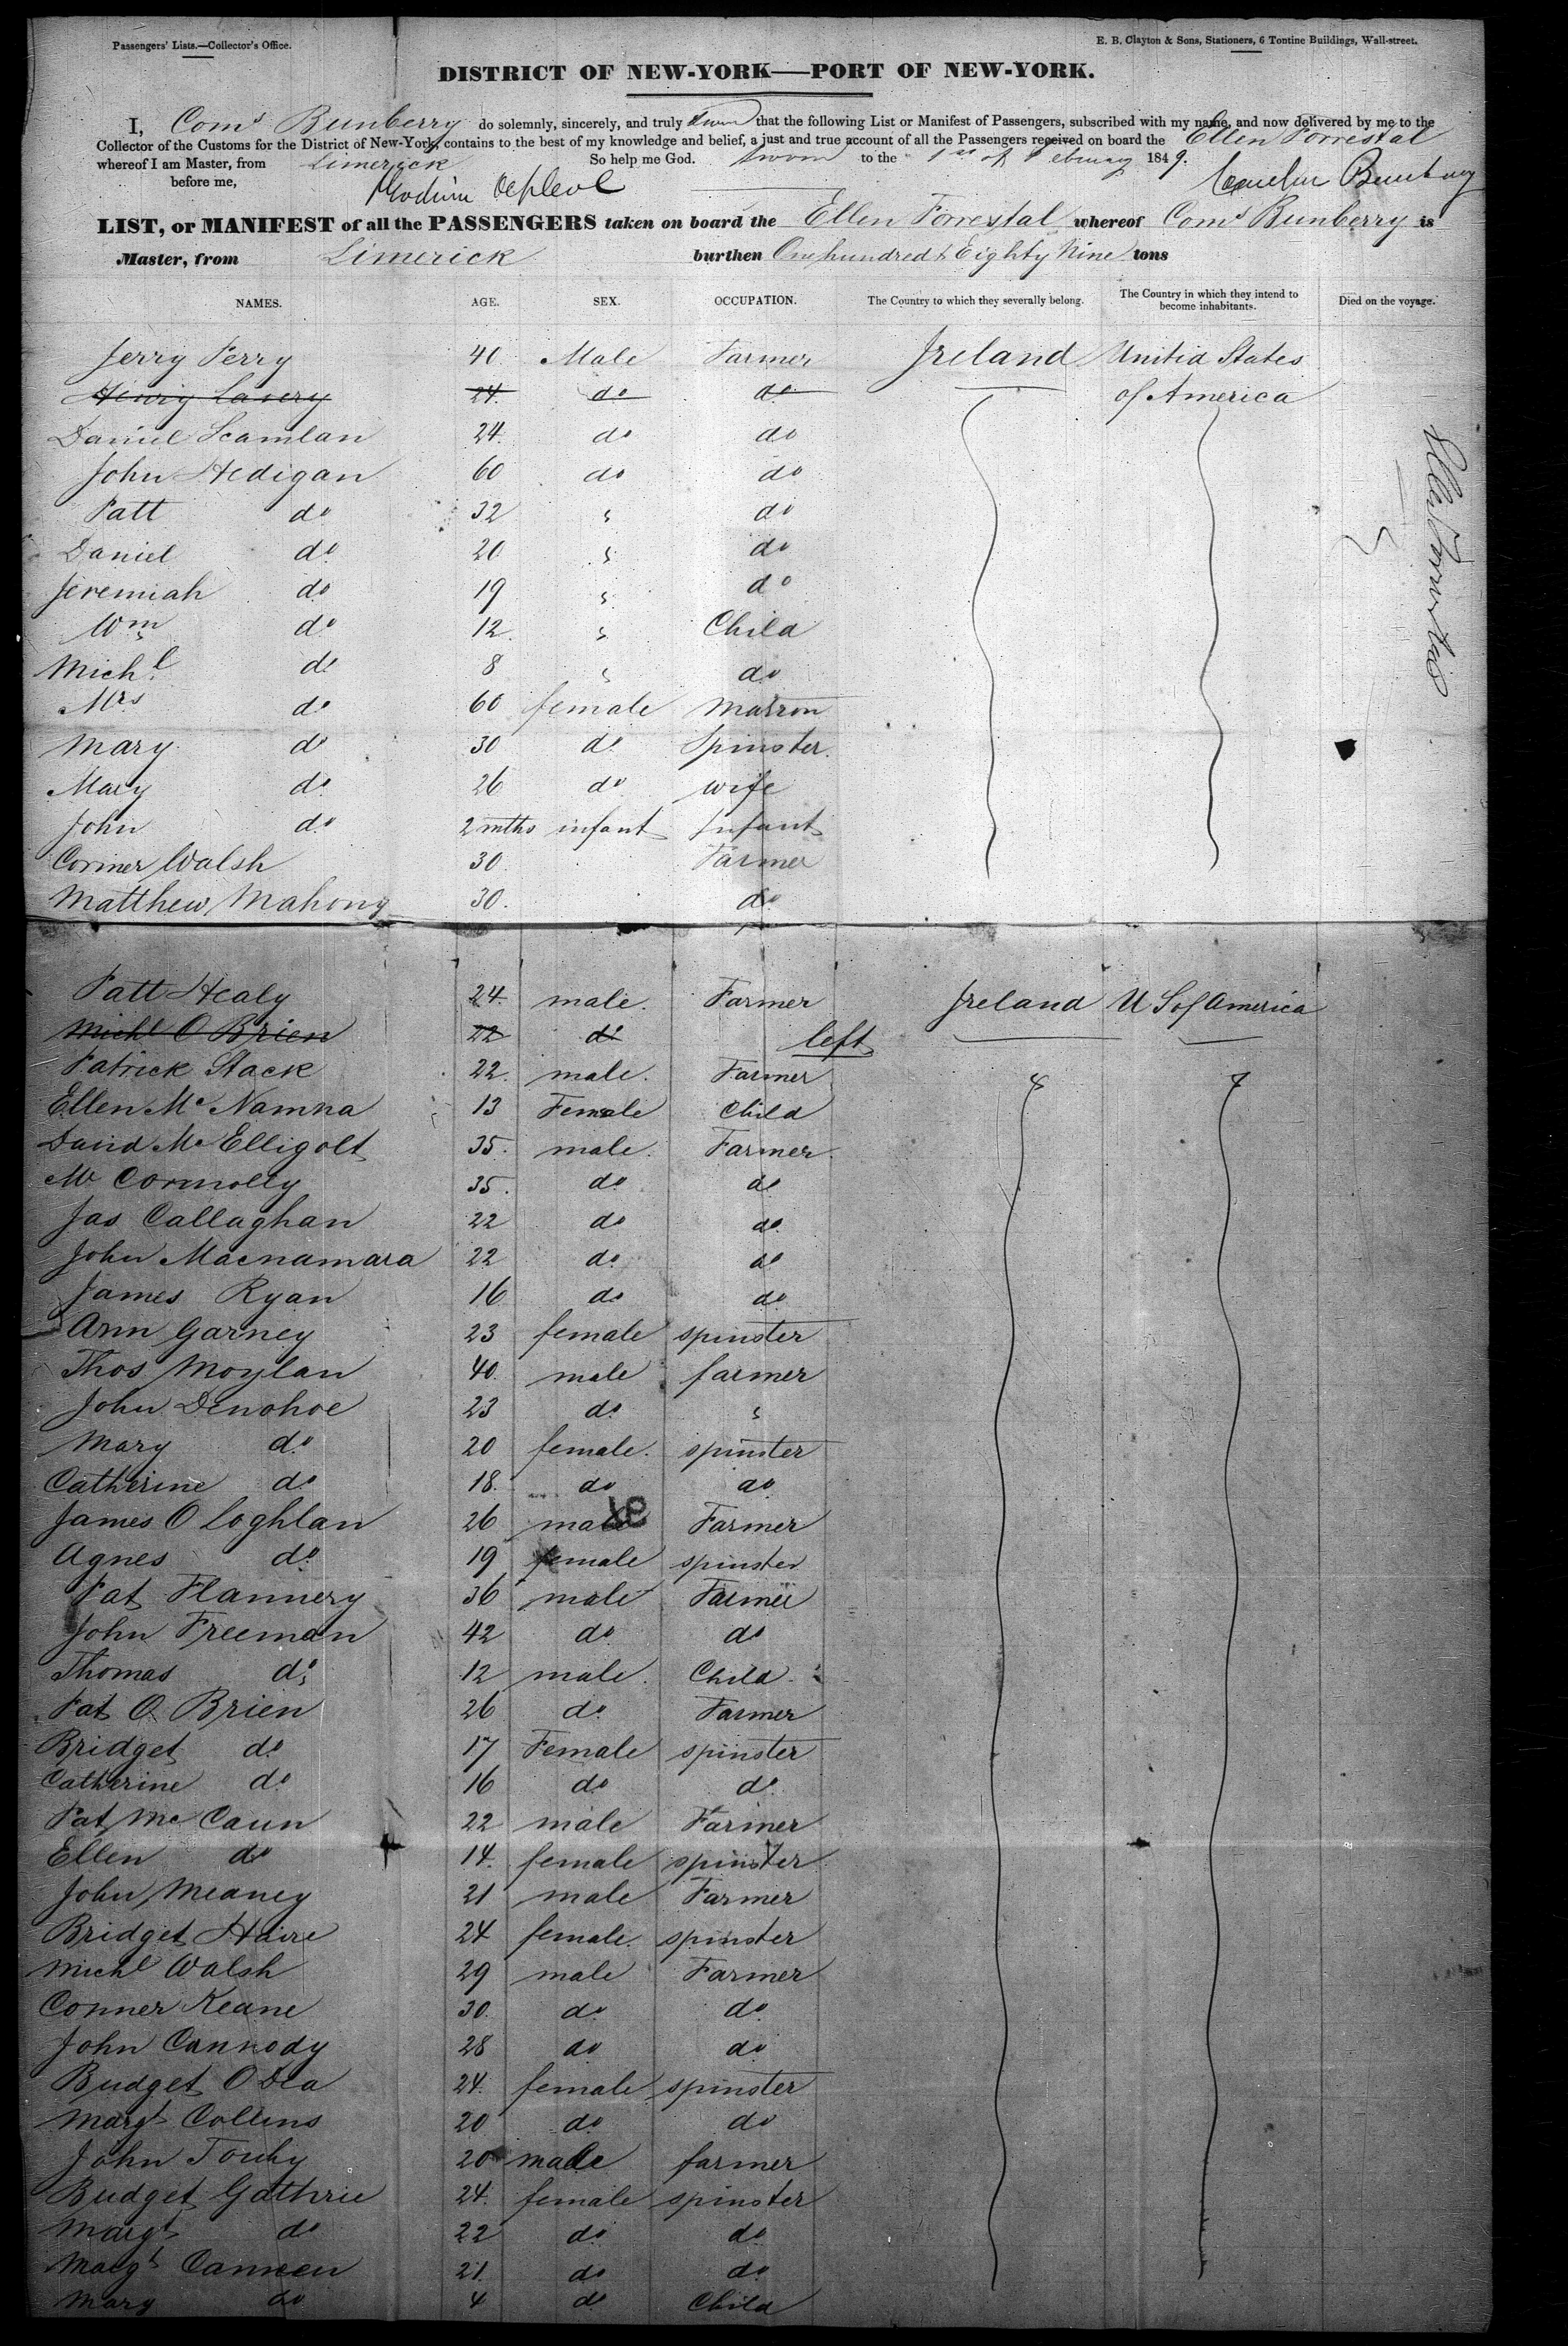 Passengers' Lists.—Collector's Office.
E. B. Clayton & Sons, Stationers, 6 Tontine Buildings, Wall-street.
DISTRICT OF NEW-YORK—PORT OF NEW-YORK.
I, Corns Bunberry do solemnly, sincerely, and truly swear that the following List or Manifest of Passengers, subscribed with my name, and now delivered by me to the
Collector of the Customs for the District of New-York, contains to the best of my knowledge and belief, a just and true account of all the Passengers received on board the Ellen Forrestal
whereof I am Master, from Limerick So help me God. Sworn to the 1st of February 1849.
before me,
LIST, or MANIFEST of all the PASSENGERS taken on board the Ellen Forrestal whereof Corns Bunberry is
Master, from Limerick burthen One hundred & Eighty Nine tons
NAMES. AGE. SEX. OCCUPATION. The Country to which they severally belong. The Country in which they intend to become inhabitants. Died on the voyage.
Jerry Ferry 40 Male Farmer Ireland Unitid States
Henry Lavery 24 do do of America
Daniel Scamlan 24 do do
John Hedigan 60 do do
Patt do 32 " do
Daniel do 20 " do
Jeremiah do 19 " do
Wm do 12 " Child
Michl do 8 " do
Mrs do 60 female Matron
Mary do 30 do Spinster
Mary do 26 do wife
John do 2 mths infant Infant
Conner Walsh 30 Farmer
Matthew Mahony 30 do
Patt Healy 24 male Farmer Ireland U S of America
Michl O Brien 22 do left
Patrick Stack 22 male Farmer
Ellen Mc Namra 13 Female Child
David Mc Elligott 35 male Farmer
Mr Connolly 35 do do
Jas Callaghan 22 do do
John Macnamara 22 do do
James Ryan 16 do do
Ann Garney 23 female spinster
Thos Moylan 40 male farmer
John Denohoe 23 do "
Mary do 20 female spinster
Catherine do 18 do do
James O Loghlan 26 male Farmer
Agnes do 19 female spinster
Pat Flannery 36 male Farmer
John Freeman 42 do do
Thomas do 12 male Child
Pat O Brien 26 do Farmer
Bridget do 17 Female spinster
Catherine do 16 do do
Pat Mc Caun 22 male Farmer
Ellen do 14 female spinster
John Meaney 21 male Farmer
Bridget Haire 24 female spinster
Michl Walsh 29 male Farmer
Conner Keane 30 do do
John Cannody 28 do do
Bridget O Dea 24 female spinster
Margt Collins 20 do do
John Touhy 20 male farmer
Bridget Guthrie 24 female spinster
Margt do 22 do do
Margt Canneen 21 do do
Mary do 4 do Child